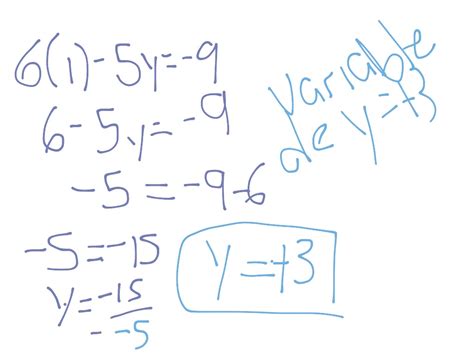 6(1)-5y=-9
6-5y=-9
-5=-9-6
-5=-15
y=-15/-5
y=+3
variable
de y=+3